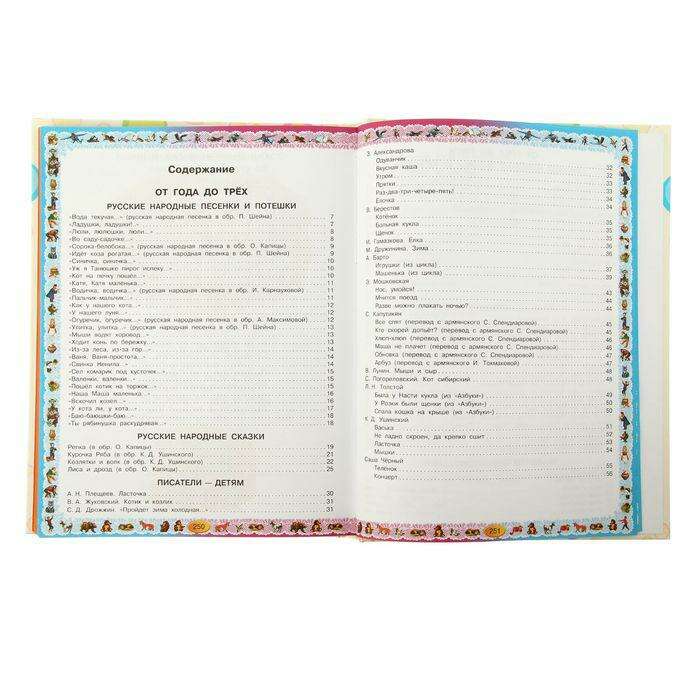 Содержание
ОТ ГОДА ДО ТРЁХ
РУССКИЕ НАРОДНЫЕ ПЕСЕНКИ И ПОТЕШКИ
«Вода текучая...» (русская народная песенка в обр. П. Шейна) 7
«Ладушки, ладушки!..» 7
«Люли, люлюшки, люли...» 8
«Во саду-садочке...» 8
«Сорока-белобока...» (русская народная песенка в обр. О. Капицы) 9
«Идёт коза рогатая...» (русская народная песенка в обр. П. Шейна) 9
«Синичка, синичка...» 9
«Уж я Танюшке пирог испеку...» 10
«Кот на печку пошёл...» 10
«Катя, Катя маленька...» 11
«Водичка, водичка...» (русская народная песенка в обр. И. Карнауховой) 11
«Пальчик-мальчик...» 11
«Как у нашего кота...» 12
«У нашего луня...» 12
«Огуречик, огуречик...» (русская народная песенка в обр. А. Максимовой) 12
«Улитка, улитка...» (русская народная песенка в обр. П. Шейна) 13
«Мыши водят хоровод...» 13
«Ходит конь по бережку...» 13
«Из-за леса, из-за гор...» 14
«Ваня, Ваня-простота...» 14
«Свинка Ненила...» 15
«Сел комарик под кусточек...» 15
«Валенки, валенки...» 15
«Пошёл котик на торжок...» 16
«Наша Маша маленька...» 16
«Вскочил козел...» 16
«У кота ли, у кота...» 17
«Баю-баюшки-баю...» 18
«Ты рябинушка раскудрявая...» 18
РУССКИЕ НАРОДНЫЕ СКАЗКИ
Репка (в обр. О. Капицы) 19
Курочка Ряба (в обр. К. Д. Ушинского) 21
Козлятки и волк (в обр. К. Д. Ушинского) 22
Лиса и дрозд (в обр. О. Капицы) 25
ПИСАТЕЛИ — ДЕТЯМ
А. Н. Плещеев. Ласточка 30
В. А. Жуковский. Котик и козлик 31
С. Д. Дрожжин. «Пройдет зима холодная...» 31
250
З. Александрова
Одуванчик
Вкусная каша 32
Утром 32
Прятки 33
Раз-два-три-четыре-пять! 33
Ёлочка 34
В. Берестов
Котёнок
Больная кукла 35
Щенок 35
И. Гамазкова. Ёлка 35
М. Дружинина. Зима 36
А. Барто
Игрушки (из цикла) 37
Машенька (из цикла) 39
Э. Мошковская
Нос, умойся! 43
Мчится поезд 43
Разве можно плакать ночью? 44
С. Капутикян
Все спят (перевод с армянского С. Спендиаровой) 45
Кто скорей допьёт? (перевод с армянского С. Спендиаровой) 45
Хлюп-хлюп (перевод с армянского С. Спендиаровой) 46
Маша не плачет (перевод с армянского С. Спендиаровой) 46
Обновка (перевод с армянского С. Спендиаровой) 47
Арбуз (перевод с армянского И. Токмаковой) 47
В. Лунин. Мыши и сыр 48
С. Погореловский. Кот сибирский 48
Л. Н. Толстой
Была у Насти кукла (из «Азбуки») 49
У Розки были щенки (из «Азбуки») 50
Спала кошка на крыше (из «Азбуки») 50
К. Д. Ушинский
Васька 51
Не ладно скроен, да крепко сшит 52
Ласточка 53
Мышки 54
Саша Чёрный
Телёнок 55
Концерт 56
251